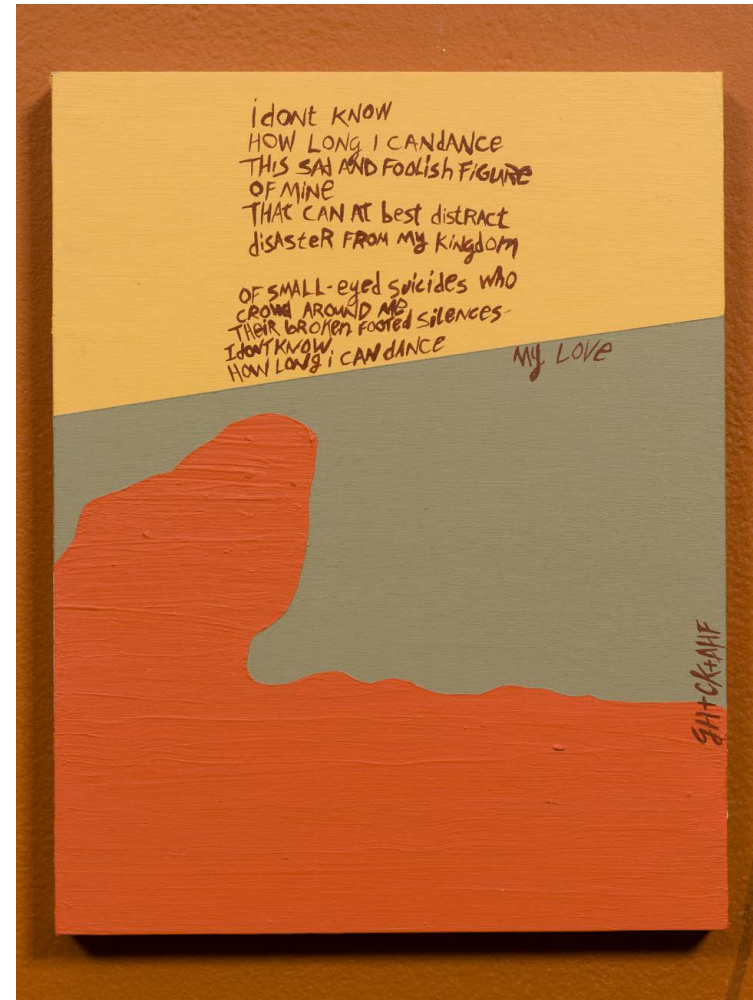 idoNt KNOW
HOW LONg I CANdANCe
THIS SAd AND FOOLish FiGURe
OF MiNe
THAt CAN AT best distRAct
disAsteR FROM My Kingdom
OF SMALL-eyed suicides who
CROWd AROUND Me
THeiR bROKeN FOOted silences
I doNt KNOW
HOW LONg i CAN dANCe
My LOVe
gH+CK+AHF